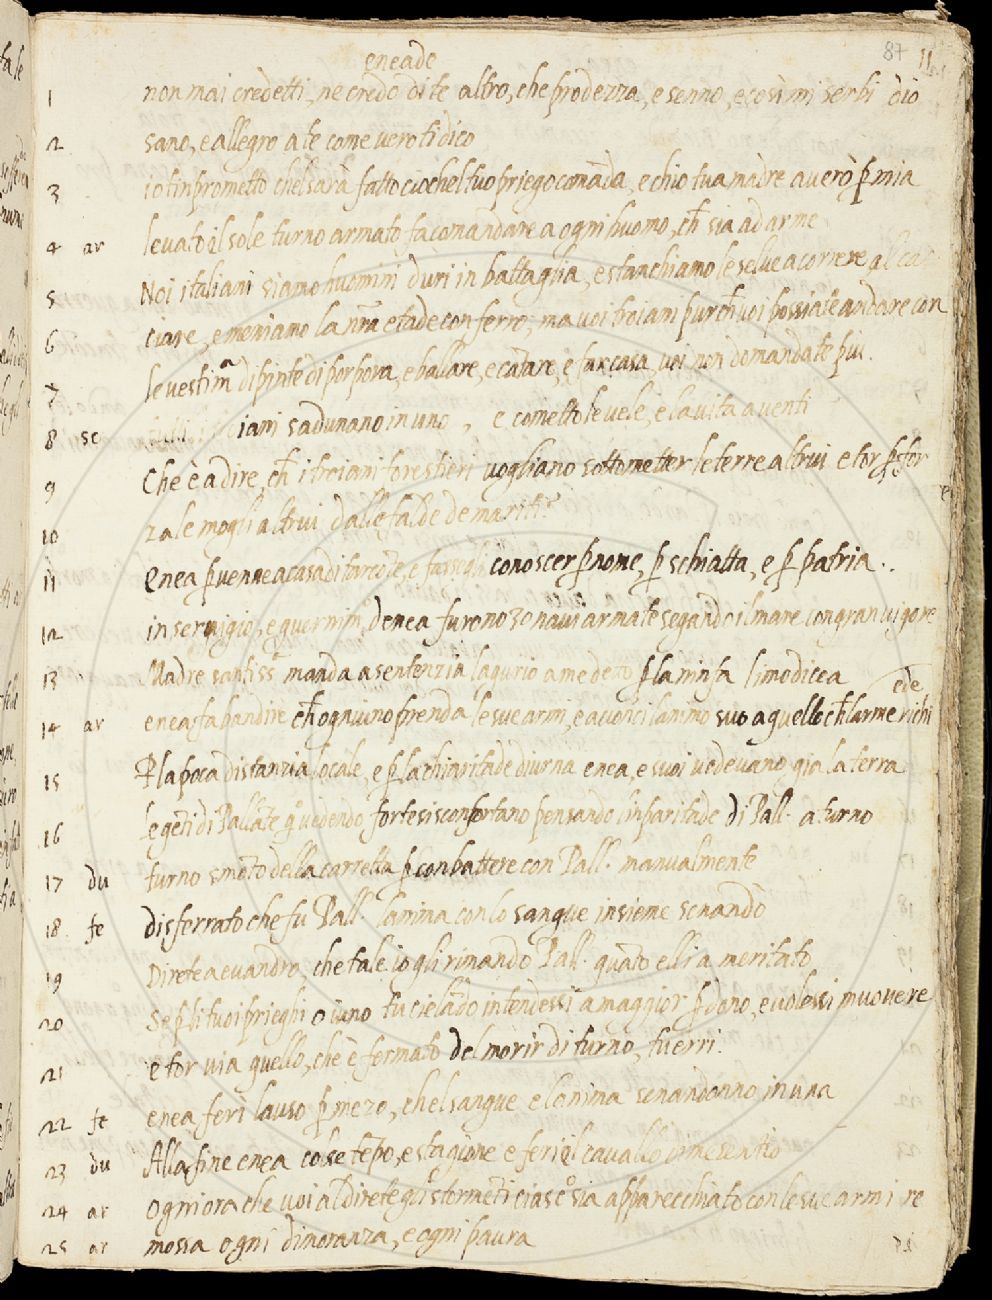 87 11
eneade
1 non mai credetti, ne credo di te altro, che prodezza, e senno, e cosi mi serbi dio
2 sano, e allegro a te come vero ti dico
3 io tinprometto chel sarà fatto cio chel tuo priego comāda, e chio tua madre averò p̄ mia
4 ar levato il sole turno armato fa comandare a ogni huomo, ch̄ sia ad arme
5 Noi italiani siamo huomini duri in battaglia, e stanchiamo le selve a correre al cac
6 ciare, e meniamo la nr̄a etade con ferro, ma voi troiani purch̄ voi possiate andare con
7 le vestim̄ dipinte di porpora, e ballare, e cātare, e far casa, voi non domandate piu.
8 se iani sadunano in uno, e cometto le vele, e la vita a venti
9 Che è a dire, ch̄ i troiani forestieri vogliano sottometter le terre altrui e tor p̄ for
10 za le mogli altrui dalle falde de mariti?
11 Enea p̄venne a casa di tarcōte, e fassegli conoscer p̄ nome, p̄ schiatta, e p̄ patria..
12 in servigio, e guernim̄ᵒ denea furono 30 navi armate segando il mare con gran vigore
13 Madre santiss.ᵃ manda a sentenzia lagurio a me deto p̄ la ninfa limodicea
ede
14 ar enea fa bandire ch̄ ognuno prenda le sue armi, e aconci lanimo suo a quello ch̄ larme richi
15 P̄ la poca distanzia locale, e p̄ la chiaritade diurna enea, e suoi vedevano gia la terra
16 le gēti di Pallāte q̊ vedendo forte si sconfortano pensando linparitade di Pall. a turno
17 du turno smōto della carretta p̄ conbattere con Pall. manualmente
18 fe disferrato che fu Pall. lanima con lo sangue insieme senandò
19 Direte a evandro, che tale io gli rimando Pall. quāto elli a meritato
20 Se p̄ li tuoi prieghi o iuno tu cielādo intendessi a maggior p̄dono, e volessi muovere
21 e tor via quello, che è fermato del morir di turno, tu erri.
22 fe enea ferì lauso p̄ mezo, chel sangue e lanima senandonno in una
23 du Alla fine enea colse tēpo, e stagione e ferì il cavallo
24 ar Ogni ora che voi aldirete gl' stormēti ciasc̊ sia apparecchiato con le sue armi re
25 ar mossa ogni dimoranza, e ogni paura